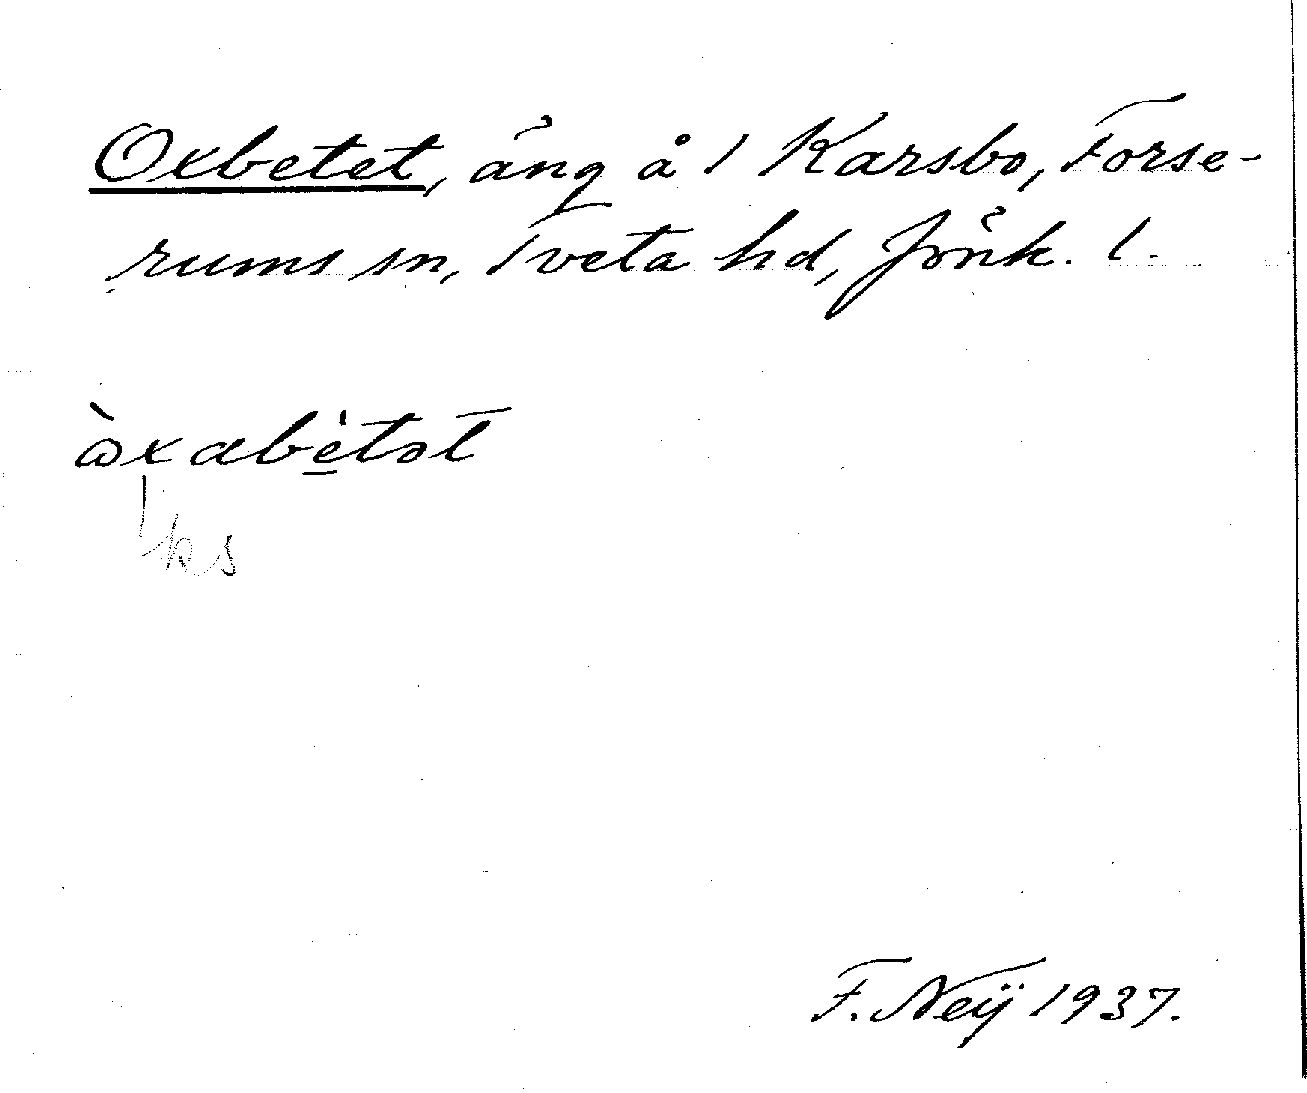 Oxbetet, äng å 1 Karsbo, Forse-
rums sn, Tveta hd, Jönk. l.
ὼxabètət
ks
F. Neÿ 1937.